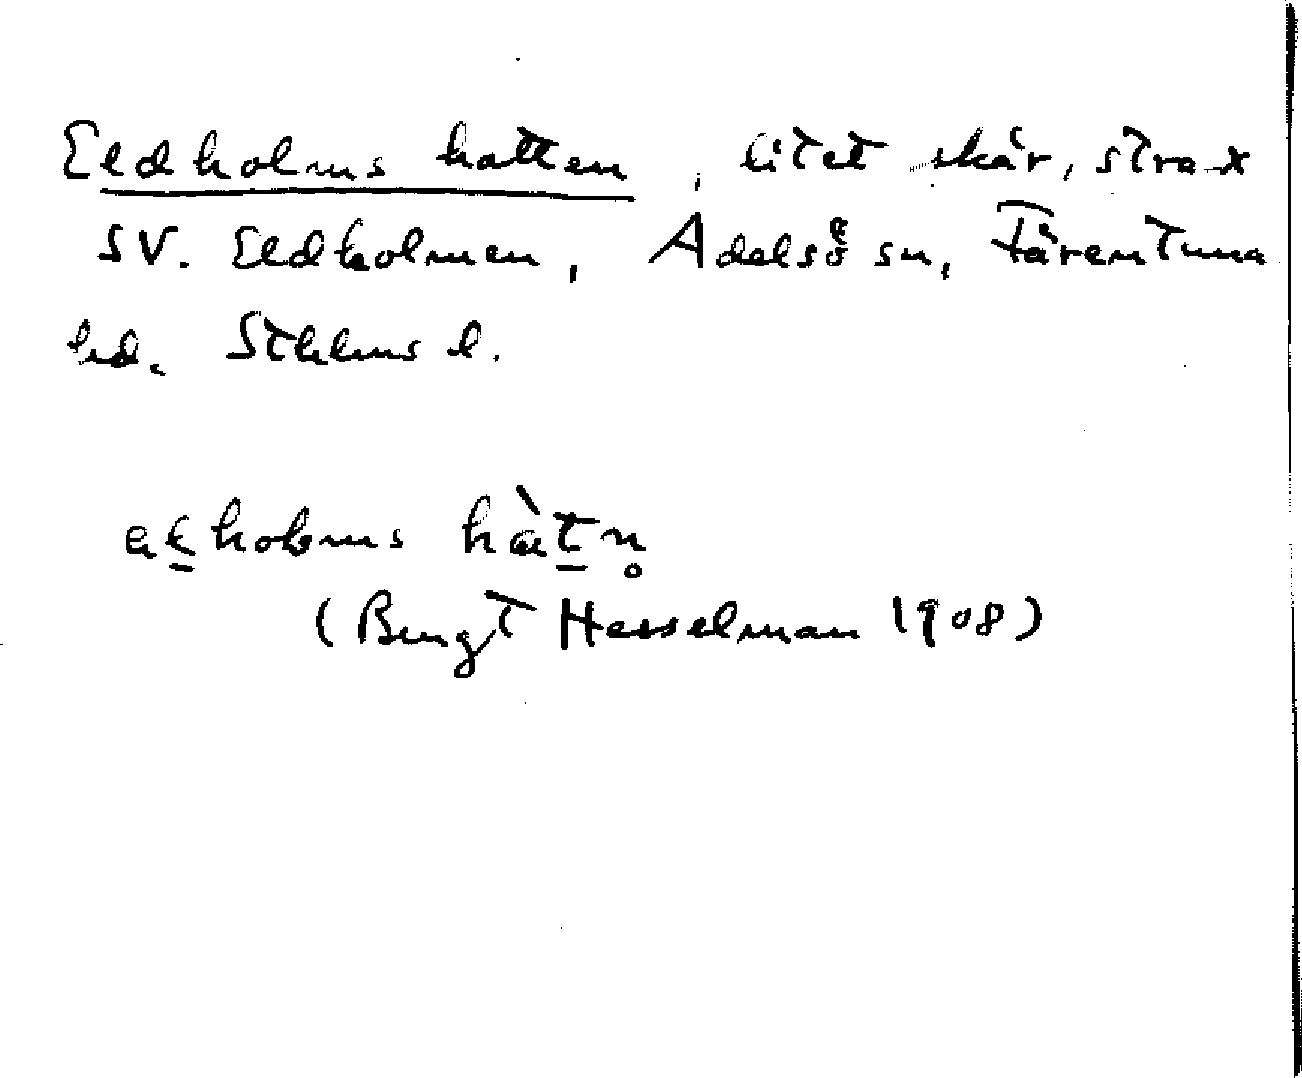 Eldholms hatten, litet skär, strax
SV. Eldholmen, Adelsö sn, Färentuna
hd. Sthlms l.
hàtn̥
(Bengt Hesselman 1908)